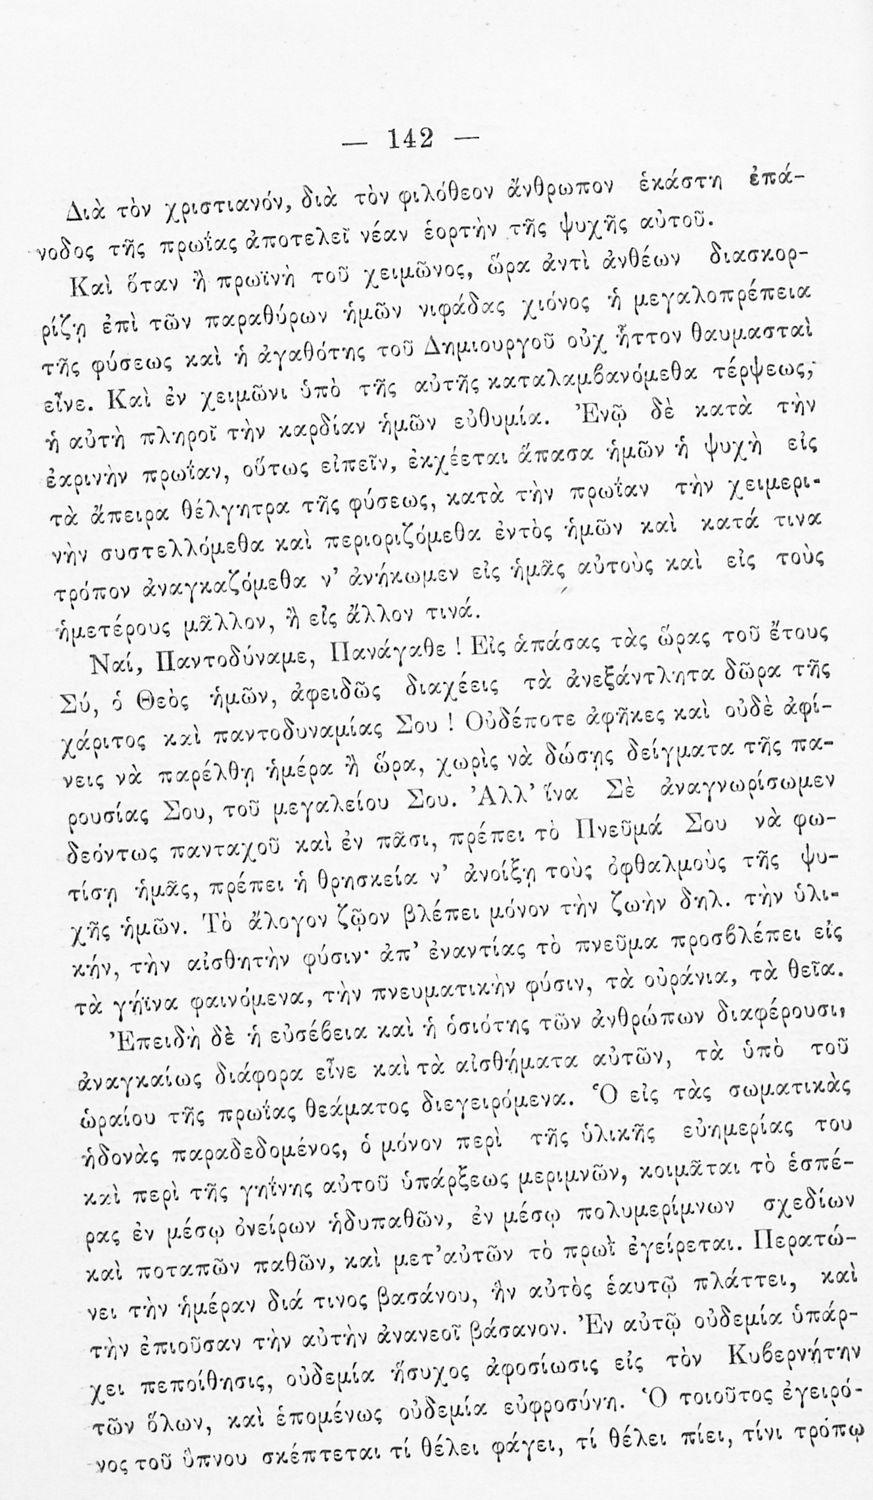 — 142 —
Διὰ τὸν χριστιανόν, διὰ τὸν φιλόθεον ἄνθρωπον ἑκάστη ἐπά-
νοδος τῆς πρωΐας ἀποτελεῖ νέαν ἑορτὴν τῆς ψυχῆς αὐτοῦ.
Καὶ ὅταν ἢ πρωϊνὴ τοῦ χειμῶνος, ὥρα ἀντὶ ἀνθέων διασκορ-
ρίζῃ ἐπὶ τῶν παραθύρων ἡμῶν νιφάδας χιόνος ἡ μεγαλοπρέπεια
τῆς φύσεως καὶ ἡ ἀγαθότης τοῦ Δημιουργοῦ οὐχ ἧττον θαυμασταὶ
εἶνε. Καὶ ἐν χειμῶνι ὑπὸ τῆς αὐτῆς καταλαμβανόμεθα τέρψεως,
ἡ αὐτὴ πληροῖ τὴν καρδίαν ἡμῶν εὐθυμία. Ἐνῷ δὲ κατὰ τὴν
ἐαρινὴν πρωΐαν, οὕτως εἰπεῖν, ἐκχέεται ἅπασα ἡμῶν ἡ ψυχὴ εἰς
τὰ ἄπειρα θέλγητρα τῆς φύσεως, κατὰ τὴν πρωΐαν τὴν χειμερι-
νὴν συστελλόμεθα καὶ περιοριζόμεθα ἐντὸς ἡμῶν καὶ κατά τινα
τρόπον ἀναγκαζόμεθα ν' ἀνήκωμεν εἰς ἡμᾶς αὐτοὺς καὶ εἰς τοὺς
ἡμετέρους μᾶλλον, ἢ εἰς ἄλλον τινά.
Ναί, Παντοδύναμε, Πανάγαθε ! Εἰς ἁπάσας τὰς ὥρας τοῦ ἔτους
Σύ, ὁ Θεὸς ἡμῶν, ἀφειδῶς διαχέεις τὰ ἀνεξάντλητα δῶρα τῆς
χάριτος καὶ παντοδυναμίας Σου ! Οὐδέποτε ἀφῆκες καὶ οὐδὲ ἀφί-
νεις νὰ παρέλθῃ ἡμέρα ἢ ὥρα, χωρὶς νὰ δώσῃς δείγματα τῆς πα-
ρουσίας Σου, τοῦ μεγαλείου Σου. Ἀλλ' ἵνα Σὲ ἀναγνωρίσωμεν
δεόντως πανταχοῦ καὶ ἐν πᾶσι, πρέπει τὸ Πνεῦμά Σου νὰ φω-
τίσῃ ἡμᾶς, πρέπει ἡ θρησκεία ν' ἀνοίξῃ τοὺς ὀφθαλμοὺς τῆς ψυ-
χῆς ἡμῶν. Τὸ ἄλογον ζῷον βλέπει μόνον τὴν ζωὴν δηλ. τὴν ὑλι-
κήν, τὴν αἰσθητὴν φύσιν· ἀπ' ἐναντίας τὸ πνεῦμα προσβλέπει εἰς
τὰ γήϊνα φαινόμενα, τὴν πνευματικὴν φύσιν, τὰ οὐράνια, τὰ θεῖα.
Ἐπειδὴ δὲ ἡ εὐσέβεια καὶ ἡ ὁσιότης τῶν ἀνθρώπων διαφέρουσι,
ἀναγκαίως διάφορα εἶνε καὶ τὰ αἰσθήματα αὐτῶν, τὰ ὑπὸ τοῦ
ὡραίου τῆς πρωΐας θεάματος διεγειρόμενα. Ὁ εἰς τὰς σωματικὰς
ἡδονὰς παραδεδομένος, ὁ μόνον περὶ τῆς ὑλικῆς εὐημερίας του
καὶ περὶ τῆς γηΐνης αὐτοῦ ὑπάρξεως μεριμνῶν, κοιμᾶται τὸ ἑσπέ-
ρας ἐν μέσῳ ὀνείρων ἡδυπαθῶν, ἐν μέσῳ πολυμερίμνων σχεδίων
καὶ ποταπῶν παθῶν, καὶ μετ' αὐτῶν τὸ πρωῒ ἐγείρεται. Περατώ-
νει τὴν ἡμέραν διά τινος βασάνου, ἣν αὐτὸς ἑαυτῷ πλάττει, καὶ
τὴν ἐπιοῦσαν τὴν αὐτὴν ἀνανεοῖ βάσανον. Ἐν αὐτῷ οὐδεμία ὑπάρ-
χει πεποίθησις, οὐδεμία ἥσυχος ἀφοσίωσις εἰς τὸν Κυβερνήτην
τῶν ὅλων, καὶ ἑπομένως οὐδεμία εὐφροσύνη. Ὁ τοιοῦτος ἐγειρό-
νος τοῦ ὕπνου σκέπτεται τί θέλει φάγει, τί θέλει πίει, τίνι τρόπῳ